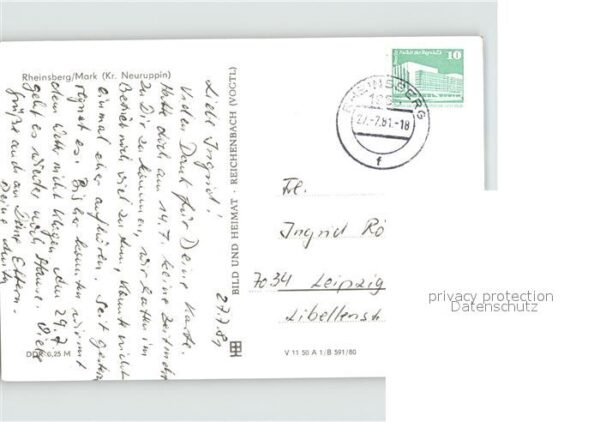 Rheinsberg/Mark (Kr. Neuruppin)
27.7.81
Liebe Ingrid!
Vielen Dank für Deine Karte.
Hatte doch am 14.7. keine Zeit mehr
zu Dir zu kommen, wir hatten im
Betrieb noch viel zu tun, kannst nicht
einmal eher aufhören. Seit gestern
regnet es. Bisher konnten wir mit
dem Wetter nicht klagen. Am 29.7.
geht es wieder nach Hause. Viele
Grüße auch an Deine Eltern.
Deine
DDR 0,25 M
BILD UND HEIMAT · REICHENBACH (VOGTL)
V 11 50 A 1/B 591/80
Palast der Republik
10
RHEINSBERG
27.-7.81.-18
f
Frl.
Ingrid Rö
7034 Leipzig
Libellenst
privacy protection
Datenschutz